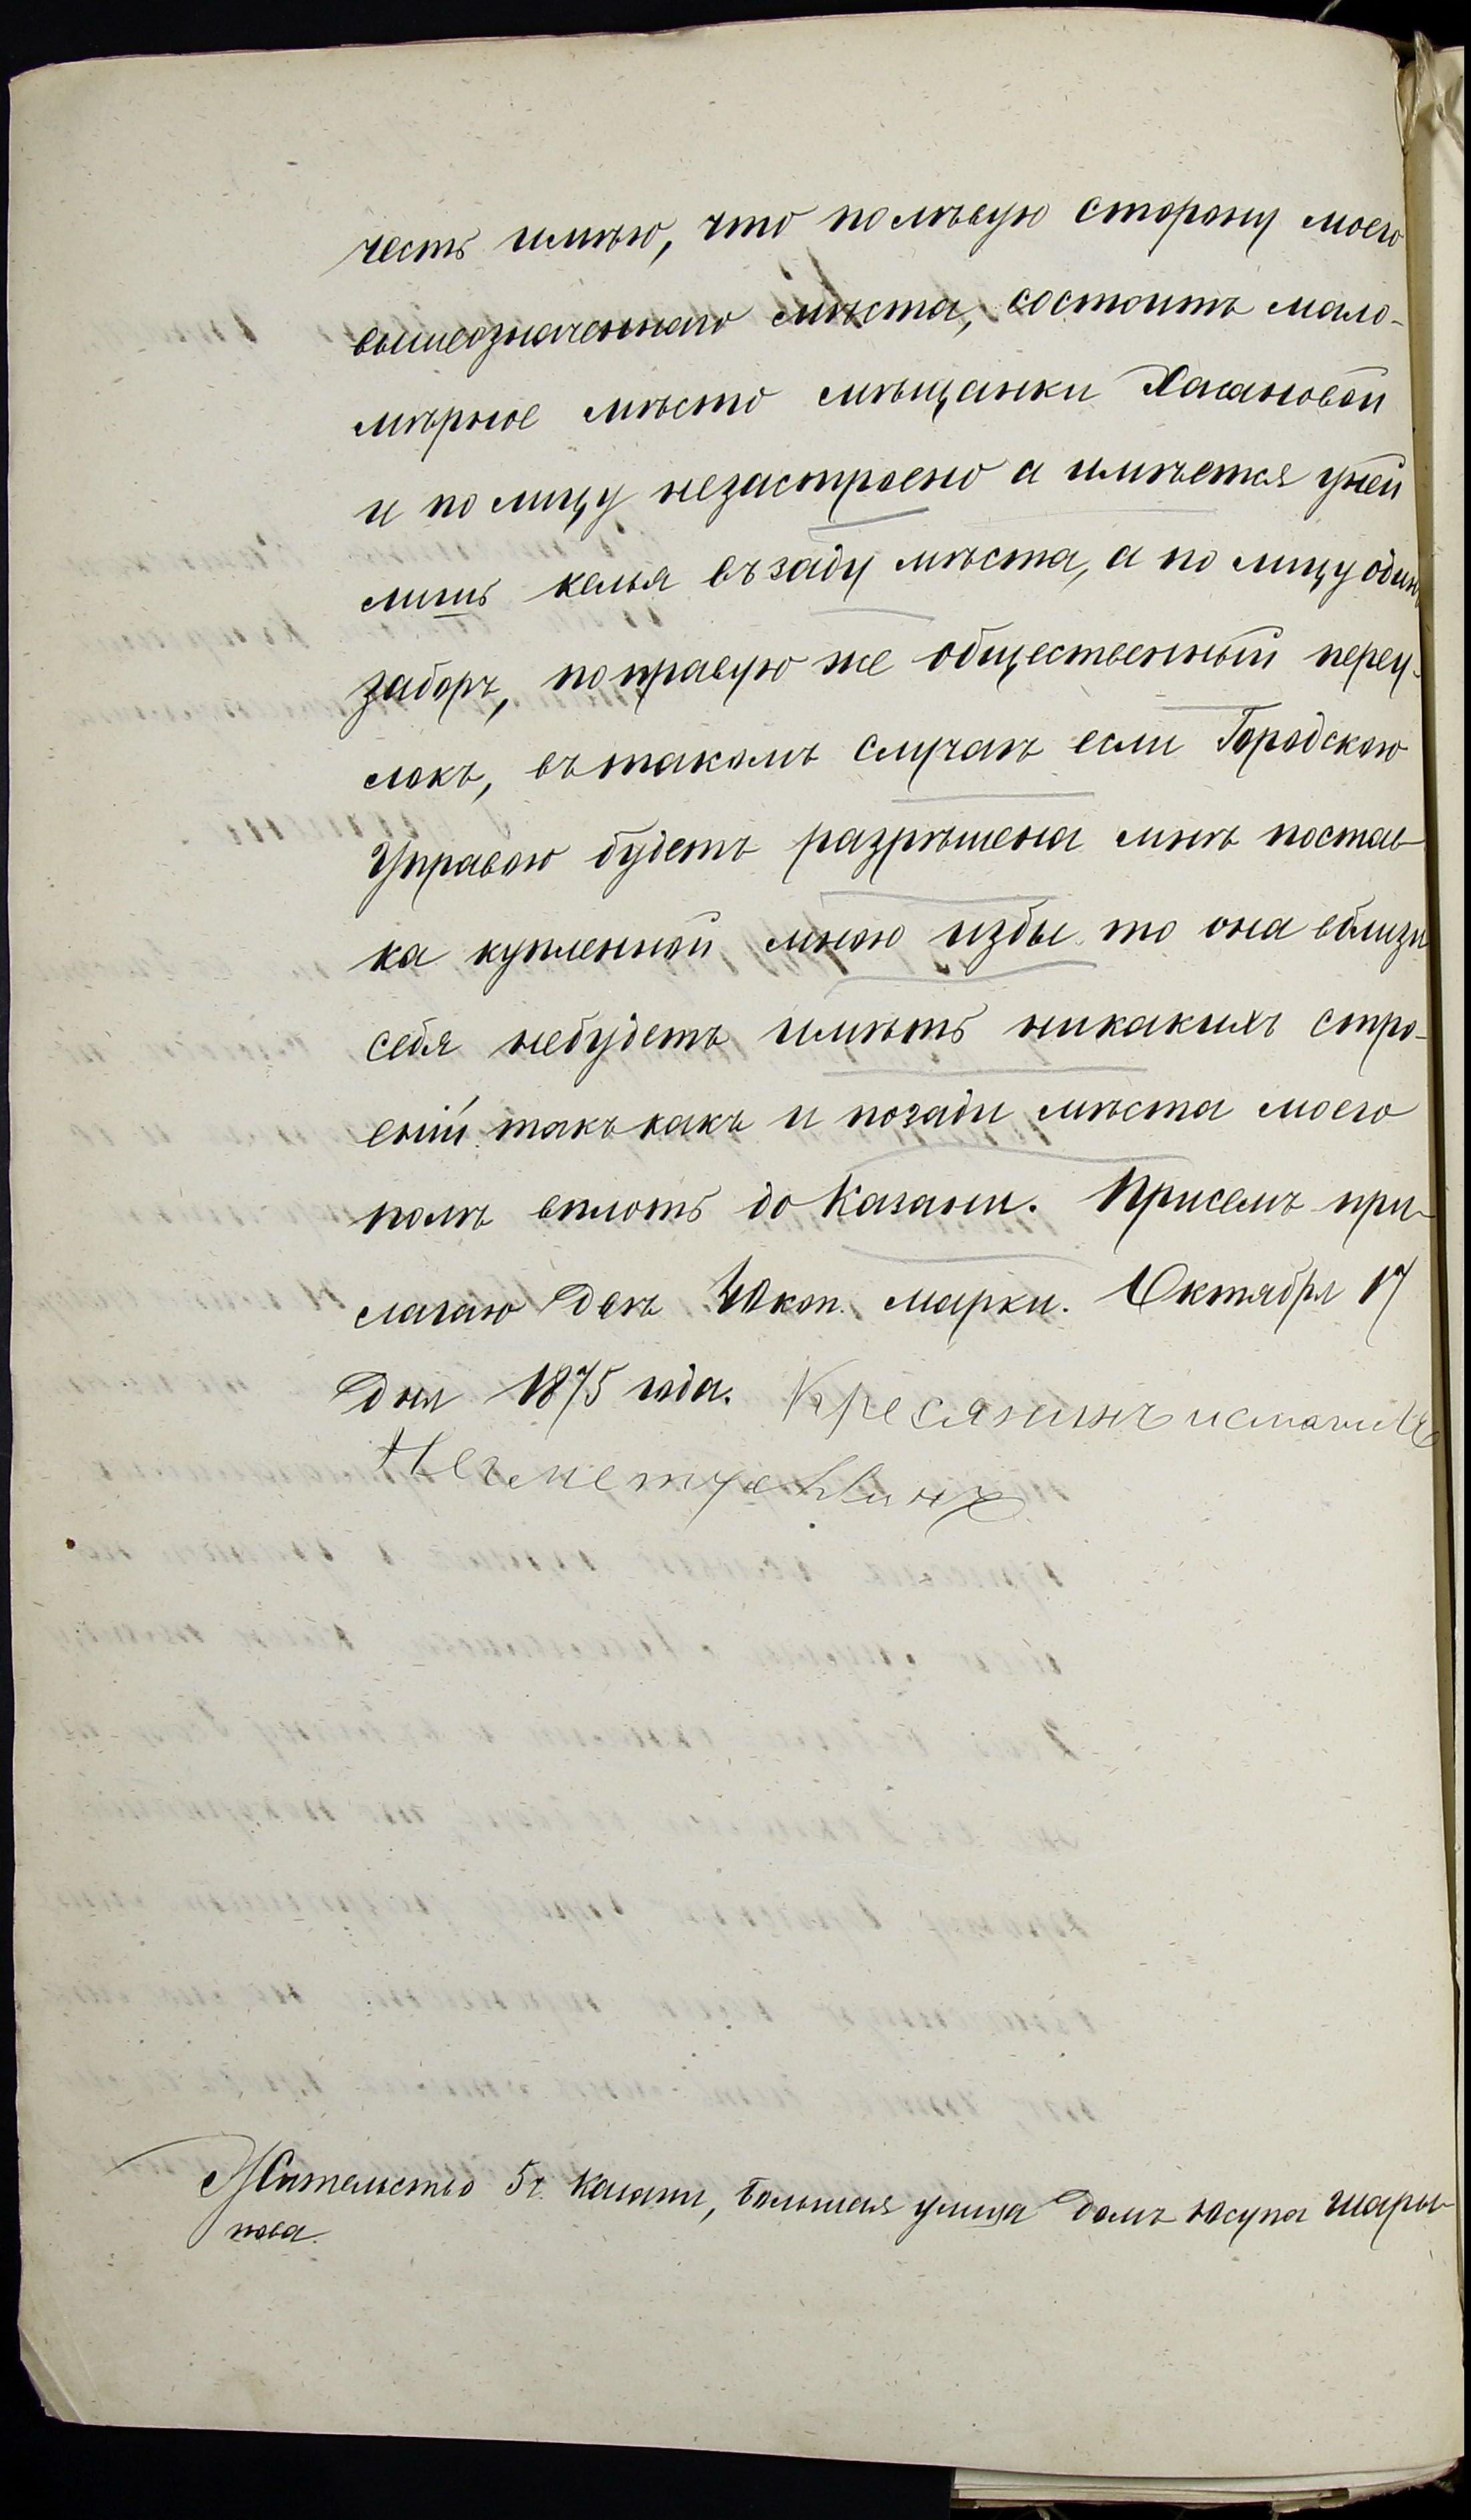 честь имѣю, что полѣвую сторону моего
вышеозначеннаго мѣста, состоитъ мало-
мѣрное мѣсто мѣщанки Хасановой
и по лицу незастроено а имѣется уней
лишь келья въ заду мѣста, а по лицу одинъ
заборъ, по правую же общественный переу-
локъ, въ такомъ случаѣ если Городскою
Управою будетъ разрѣшена мнѣ постав-
ка купленной мною избы то она вблизи
себя небудетъ имѣть никакихъ стро-
еній такъ какъ и позади мѣста моего
полѣ вплоть до Казани. Присемъ при-
лагаю двѣ 40 коп. марки. Октября 17
дня 1875 года. Кресянинъ исмаилъ

Жительство 5 ч. Казани, большая улица домъ Юсупа Шары-
пова.